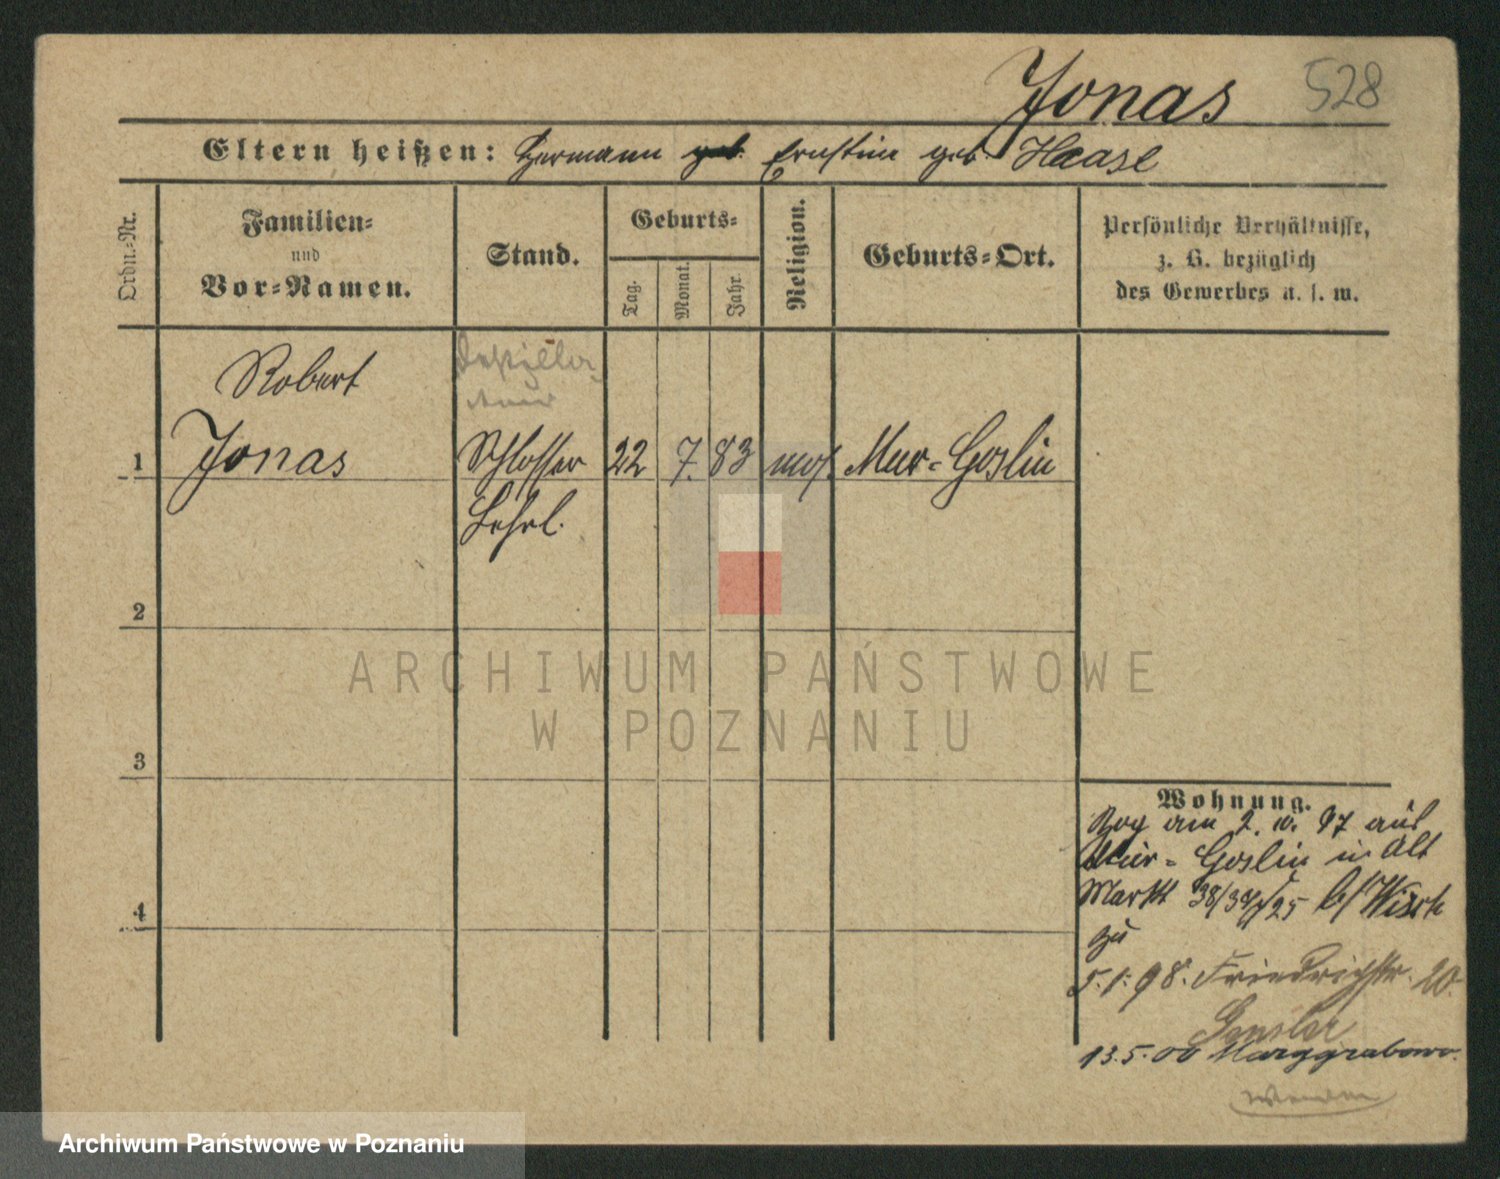 Jonas 528
Eltern heißen: Hermann geb. Ernstine geb. Haase
Ordn.-Nr.
Familien-
und
Vor-Namen.
Stand.
Geburts-
Tag.
Monat.
Jahr.
Religion.
Geburts-Ort.
Persönliche Verhältnisse,
z. B. bezüglich
des Gewerbes u. s. w.
Robert
1 Jonas Schlosser 22 7. 83 mos. Mur-Goslin
Lehrl.
2
ARCHIWUM PAŃSTWOWE
W POZNANIU
3
Wohnung.
Zog am 2. 10. 97 aus
Mur-Goslin in Alt
Markt 38/39 25 b/
4
zu
5.1.98. Friedrichstr. 20.
13.5.00 Marggrabowo.
Archiwum Państwowe w Poznaniu